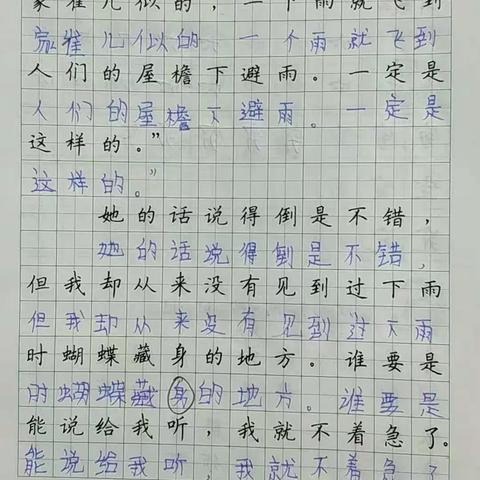 家雀儿似的，一下雨就飞到
家雀儿似的一个雨就飞到
人们的屋檐下避雨。一定是
人们的屋檐下避雨。一定是
这样的。”
这样的。”
她的话说得倒是不错，
她的话说得倒是不错，
但我却从来没有见到过下雨
但我却从来没有见到过下雨
时蝴蝶藏身的地方。谁要是
时蝴蝶藏身的地方。谁要是
能说给我听，我就不着急了。
能说给我听，我就不着急了